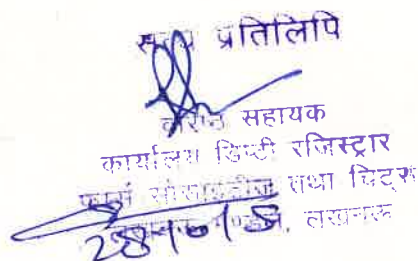 सत्य प्रतिलिपि
वरिष्ठ सहायक
कार्यालय डिप्टी रजिस्ट्रार
फर्म्स सोसाइटीज तथा चिट्स
लखनऊ